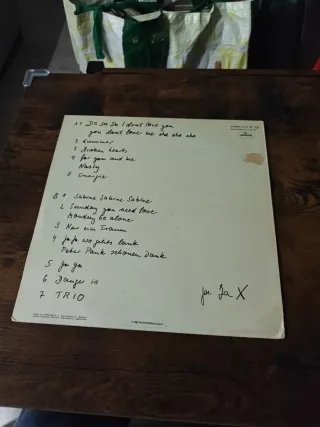 A1 Da Da Da I don't love you
you don't love me aha aha aha
2 Kummer
3 Broken hearts
4 for you and me
Nasty
5 Energie
B1 Sabine Sabine Sabine
2 Sunday you need love
Monday be alone
3 Nur ein Traum
4 Ja Ja wo gehts lank
Peter Pank schönen Dank
5 Ja Ja
6 Danger is
7 TRIO
Ja Ja X